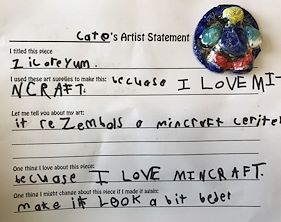 Cato's Artist Statement
I titled this piece
ZiLoreyum.
I used these art supplies to make this: becuase I LOVE MI-
NCRAFT.
Let me tell you about my art:
it reZembols a mincraft cerite
One thing I love about this piece:
becuase I LOVE MINCRAFT.
One thing I might change about this piece if I made it again:
make it LOOK a bit beder